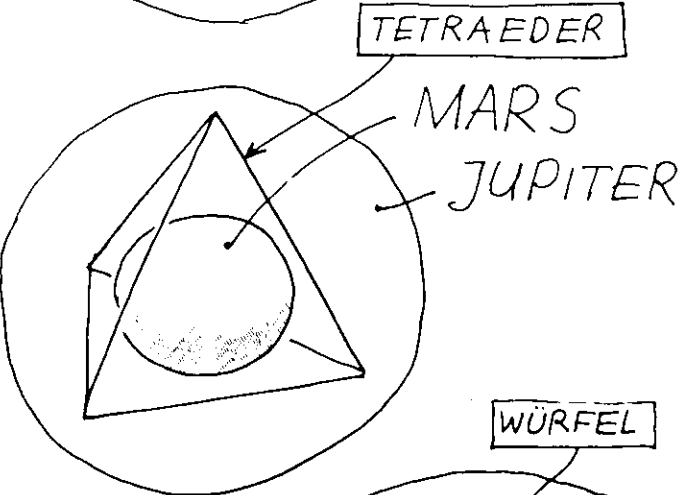 TETRAEDER
MARS
JUPITER
WÜRFEL